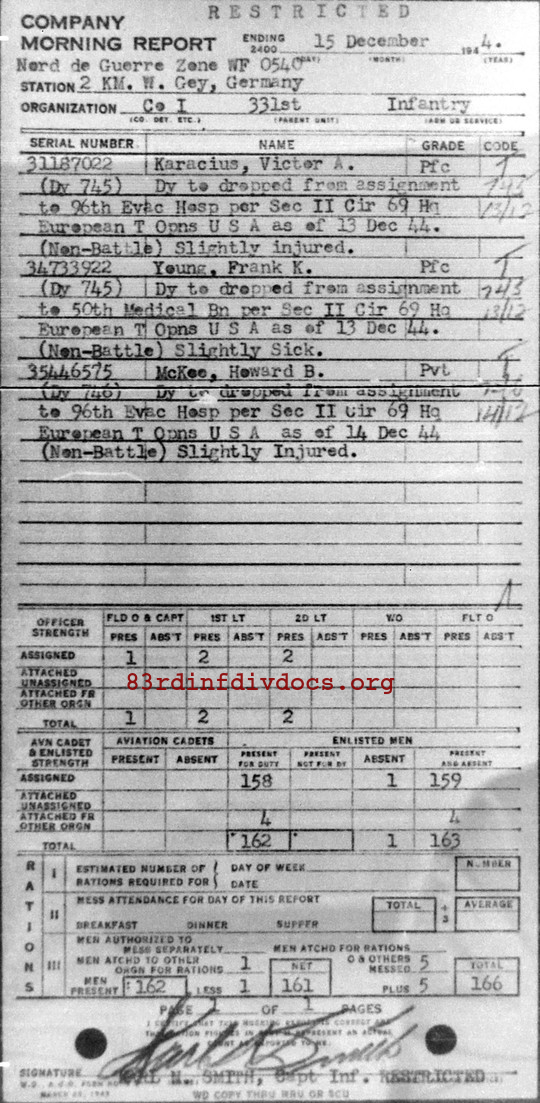 RESTRICTED
COMPANY
MORNING REPORT ENDING 2400 15 December 1944.
(DAY) (MONTH) (YEAR)
Nord de Guerre Zone WF 0540
STATION 2 KM. W. Gey, Germany
ORGANIZATION Co I 331st Infantry
(CO. DET. ETC.) (PARENT UNIT) (ARM OR SERVICE)
SERIAL NUMBER NAME GRADE CODE
31187022 Karacius, Victor A. Pfc T
(Dy 745) Dy to dropped from assignment 745
to 96th Evac Hosp per Sec II Cir 69 Hq 13/12
European T Opns U S A as of 13 Dec 44.
(Non-Battle) Slightly injured.
34733922 Young, Frank K. Pfc T
(Dy 745) Dy to dropped from assignment 745
to 50th Medical Bn per Sec II Cir 69 Hq 13/12
European T Opns U S A as of 13 Dec 44.
(Non-Battle) Slightly Sick.
35446575 McKee, Howard B. Pvt T
(Dy 746) Dy to dropped from assignment
to 96th Evac Hosp per Sec II Cir 69 Hq 14/12
European T Opns U S A as of 14 Dec 44
(Non-Battle) Slightly Injured.
OFFICER STRENGTH FLD O & CAPT 1ST LT 2D LT W O FLT O
PRES ABS'T PRES ABS'T PRES ABS'T PRES ABS'T PRES ABS'T
ASSIGNED 1 2 2
ATTACHED UNASSIGNED
83rdinfdivdocs.org
ATTACHED FR OTHER ORGN
TOTAL 1 2 2
AVN CADET & ENLISTED STRENGTH AVIATION CADETS ENLISTED MEN
PRESENT ABSENT PRESENT FOR DUTY PRESENT NOT FOR DY ABSENT PRESENT AND ABSENT
ASSIGNED 158 1 159
ATTACHED UNASSIGNED
ATTACHED FR OTHER ORGN 4 4
TOTAL 162 1 163
RATIONS
I ESTIMATED NUMBER OF RATIONS REQUIRED FOR { DAY OF WEEK DATE NUMBER
II MESS ATTENDANCE FOR DAY OF THIS REPORT TOTAL ÷ 3 AVERAGE
BREAKFAST DINNER SUPPER
III MEN AUTHORIZED TO MESS SEPARATELY MEN ATCHD FOR RATIONS
MEN ATCHD TO OTHER ORGN FOR RATIONS 1 NET O & OTHERS MESSED 5 TOTAL
MEN PRESENT 162 LESS 1 161 PLUS 5 166
PAGE 1 OF 1 PAGES
SIGNATURE KARL N. SMITH, Capt Inf. RESTRICTED
WD COPY THRU MRU OR SCU